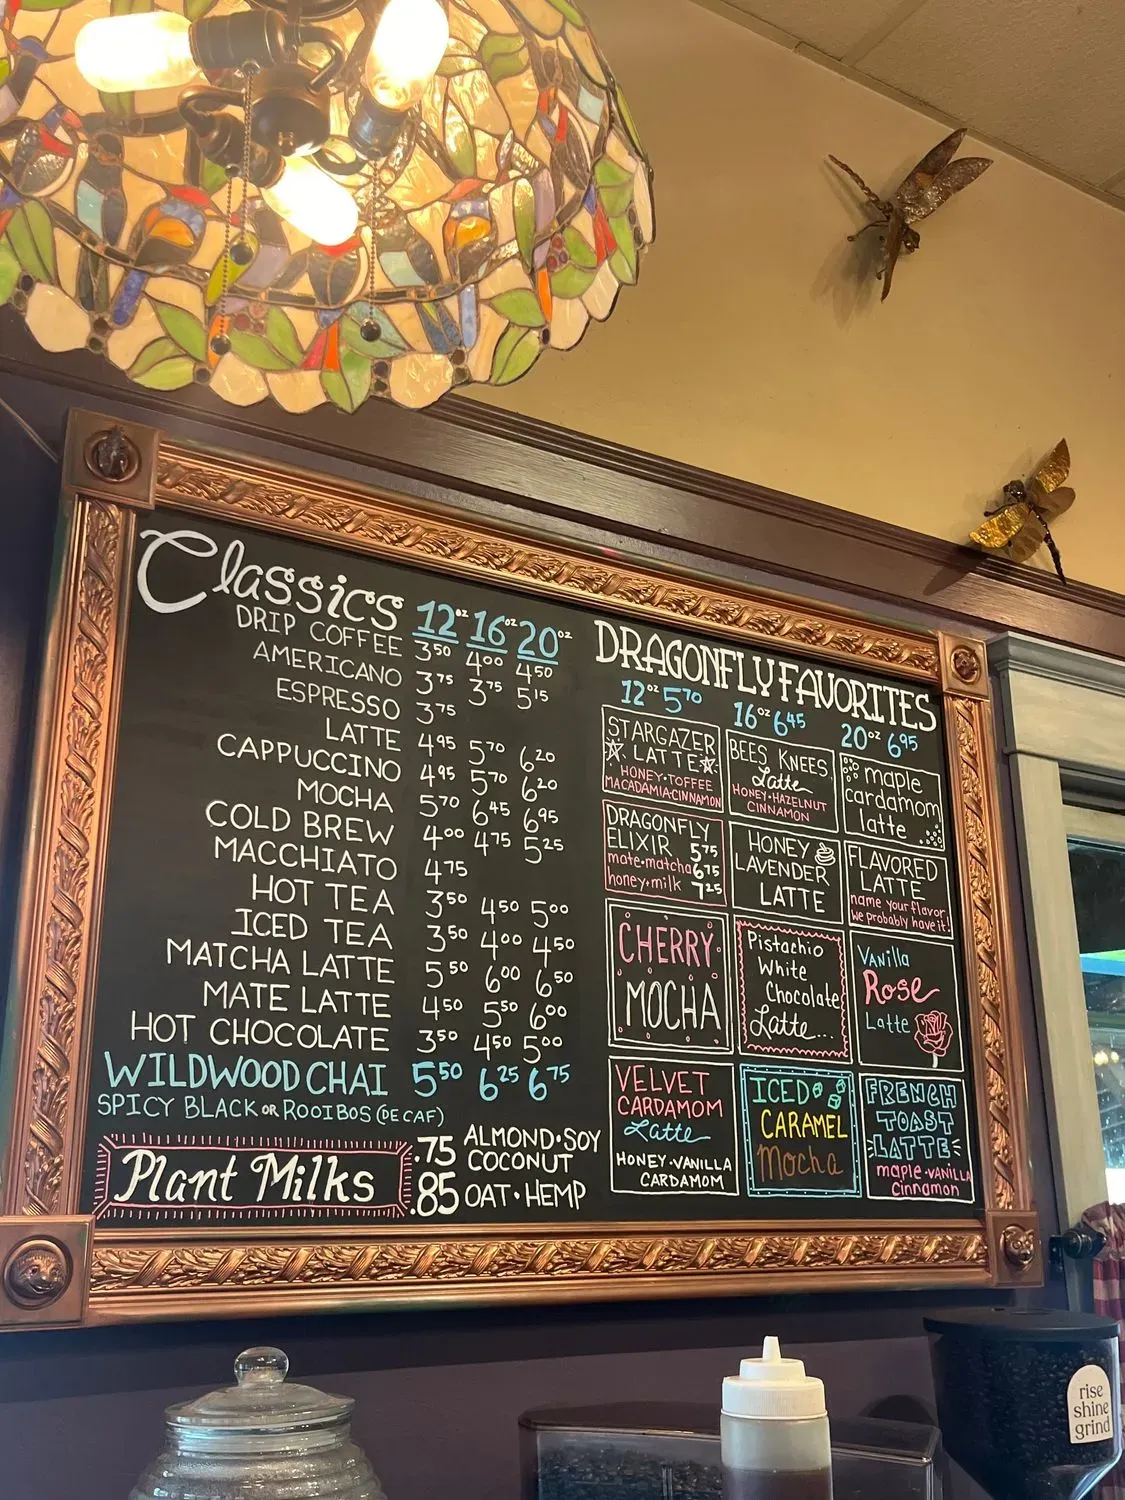 Classics 12oz 16oz 20oz
DRIP COFFEE 350 400 450
AMERICANO 375 375 515
ESPRESSO 375
LATTE 495 570 620
CAPPUCCINO 495 570 620
MOCHA 570 645 695
COLD BREW 400 475 525
MACCHIATO 475
HOT TEA 350 450 500
ICED TEA 350 400 450
MATCHA LATTE 550 600 650
MATE LATTE 450 550 600
HOT CHOCOLATE 350 450 500
WILDWOOD CHAI 550 625 675
SPICY BLACK OR ROOIBOS (DECAF)
Plant Milks
.75 ALMOND·SOY
COCONUT
.85 OAT·HEMP
DRAGONFLY FAVORITES
12oz 570 16oz 645 20oz 695
STARGAZER
LATTE
HONEY·TOFFEE
MACADAMIA·CINNAMON
BEES KNEES
Latte
HONEY·HAZELNUT
CINNAMON
maple
cardamom
latte
DRAGONFLY
ELIXIR 575
mate·matcha 675
honey·milk 725
HONEY
LAVENDER
LATTE
FLAVORED
LATTE
name your flavor,
we probably have it!
CHERRY
MOCHA
Pistachio
White
Chocolate
Latte...
Vanilla
Rose
Latte
VELVET
CARDAMOM
Latte
HONEY·VANILLA
CARDAMOM
ICED
CARAMEL
Mocha
FRENCH
TOAST
LATTE
maple·VANILLA
Cinnamon
rise
shine
grind